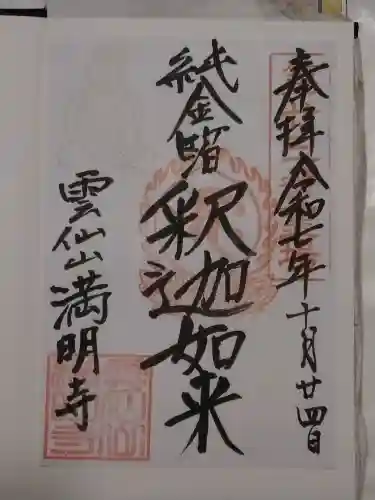 奉拝 令和七年 十月廿四日
純金箔
釈迦如来
雲仙山 満明寺